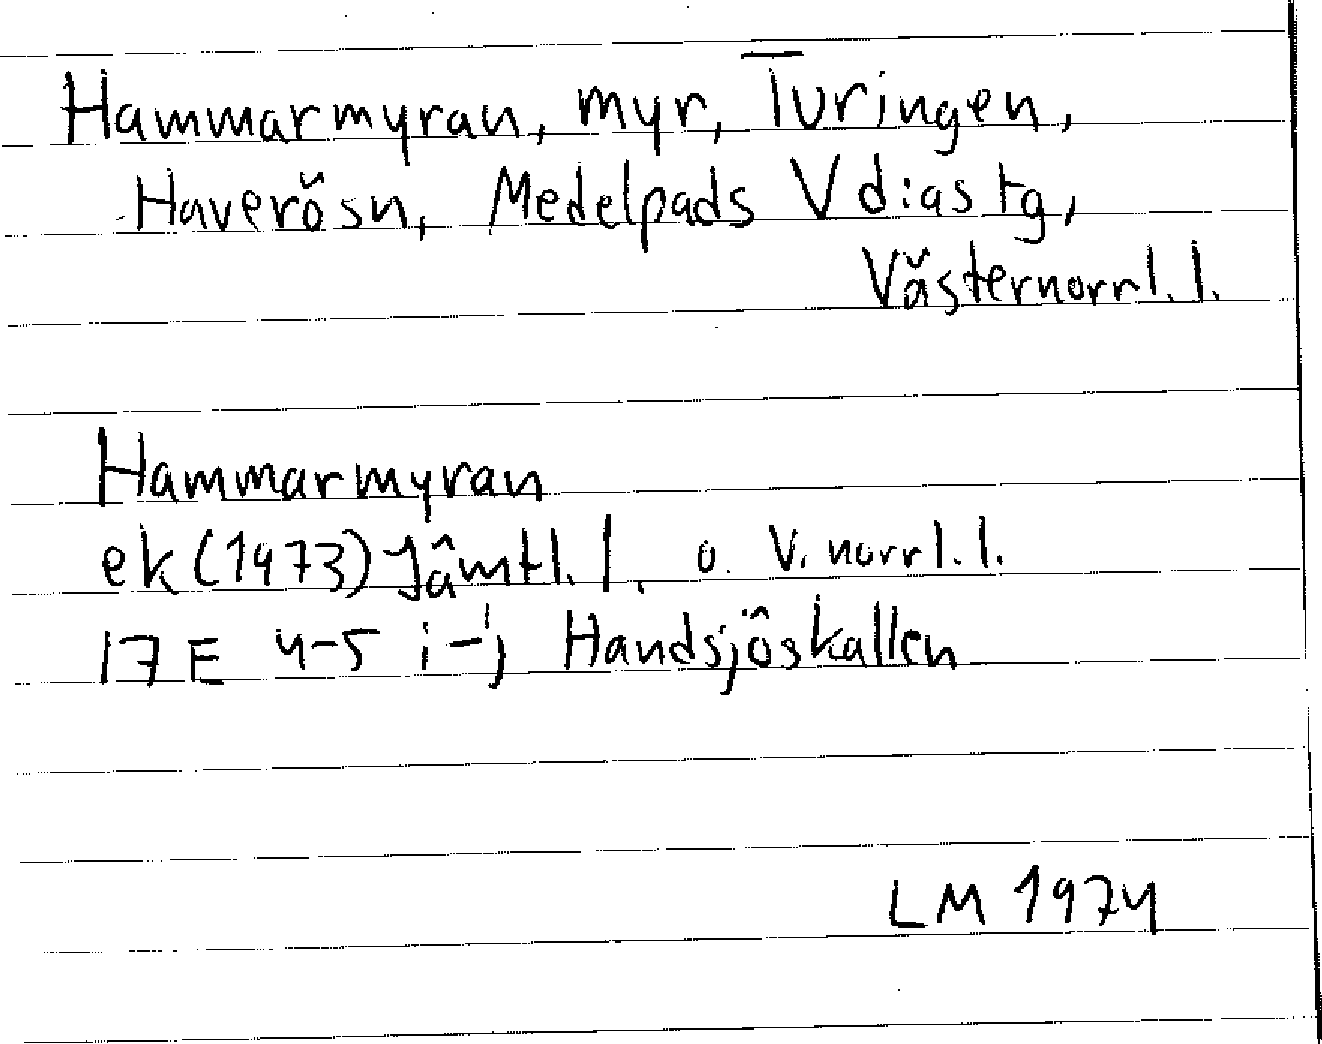 Hammarmyran, myr, Turingen,
Haverö sn, Medelpads V d:as tg,
Västernorrl. l.
Hammarmyran
ek (1973) Jämtl. l. o. V. norrl. l.
17 E 4-5 i-j Handsjöskallen
LM 1974